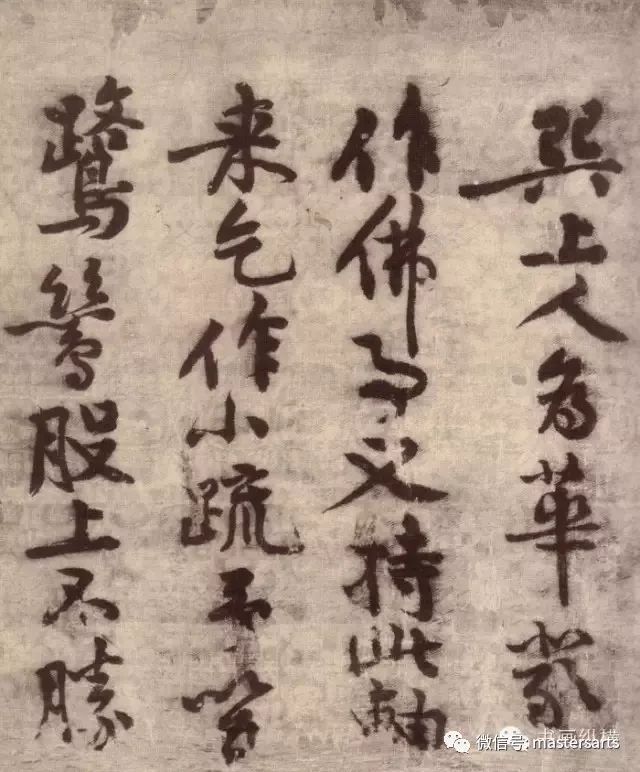 巽上人為華嚴
作佛事又持此軸
来乞作小疏
鷺鷥股上不勝
书画纵横
微信号: mastersarts